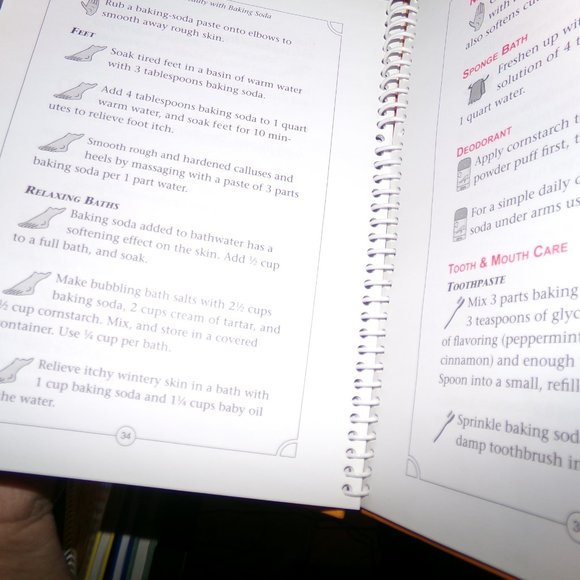 with Baking Soda
Rub a baking-soda paste onto elbows to
smooth away rough skin.
FEET
Soak tired feet in a basin of warm water
with 3 tablespoons baking soda.
Add 4 tablespoons baking soda to 1 quart
warm water, and soak feet for 10 min-
utes to relieve foot itch.
Smooth rough and hardened calluses and
heels by massaging with a paste of 3 parts
baking soda per 1 part water.
RELAXING BATHS
Baking soda added to bathwater has a
softening effect on the skin. Add ½ cup
to a full bath, and soak.
Make bubbling bath salts with 2½ cups
baking soda, 2 cups cream of tartar, and
½ cup cornstarch. Mix, and store in a covered
ontainer. Use ¼ cup per bath.
Relieve itchy wintery skin in a bath with
1 cup baking soda and 1¼ cups baby oil
he water.
34
with
also softens cu
SPONGE BATH
Freshen up wi
solution of 4 t
1 quart water.
DEODORANT
Apply cornstarch t
powder puff first, t
For a simple daily c
soda under arms us
TOOTH & MOUTH CARE
TOOTHPASTE
Mix 3 parts baking
3 teaspoons of glyc
of flavoring (peppermint
cinnamon) and enough
Spoon into a small, refill
Sprinkle baking sod
damp toothbrush in